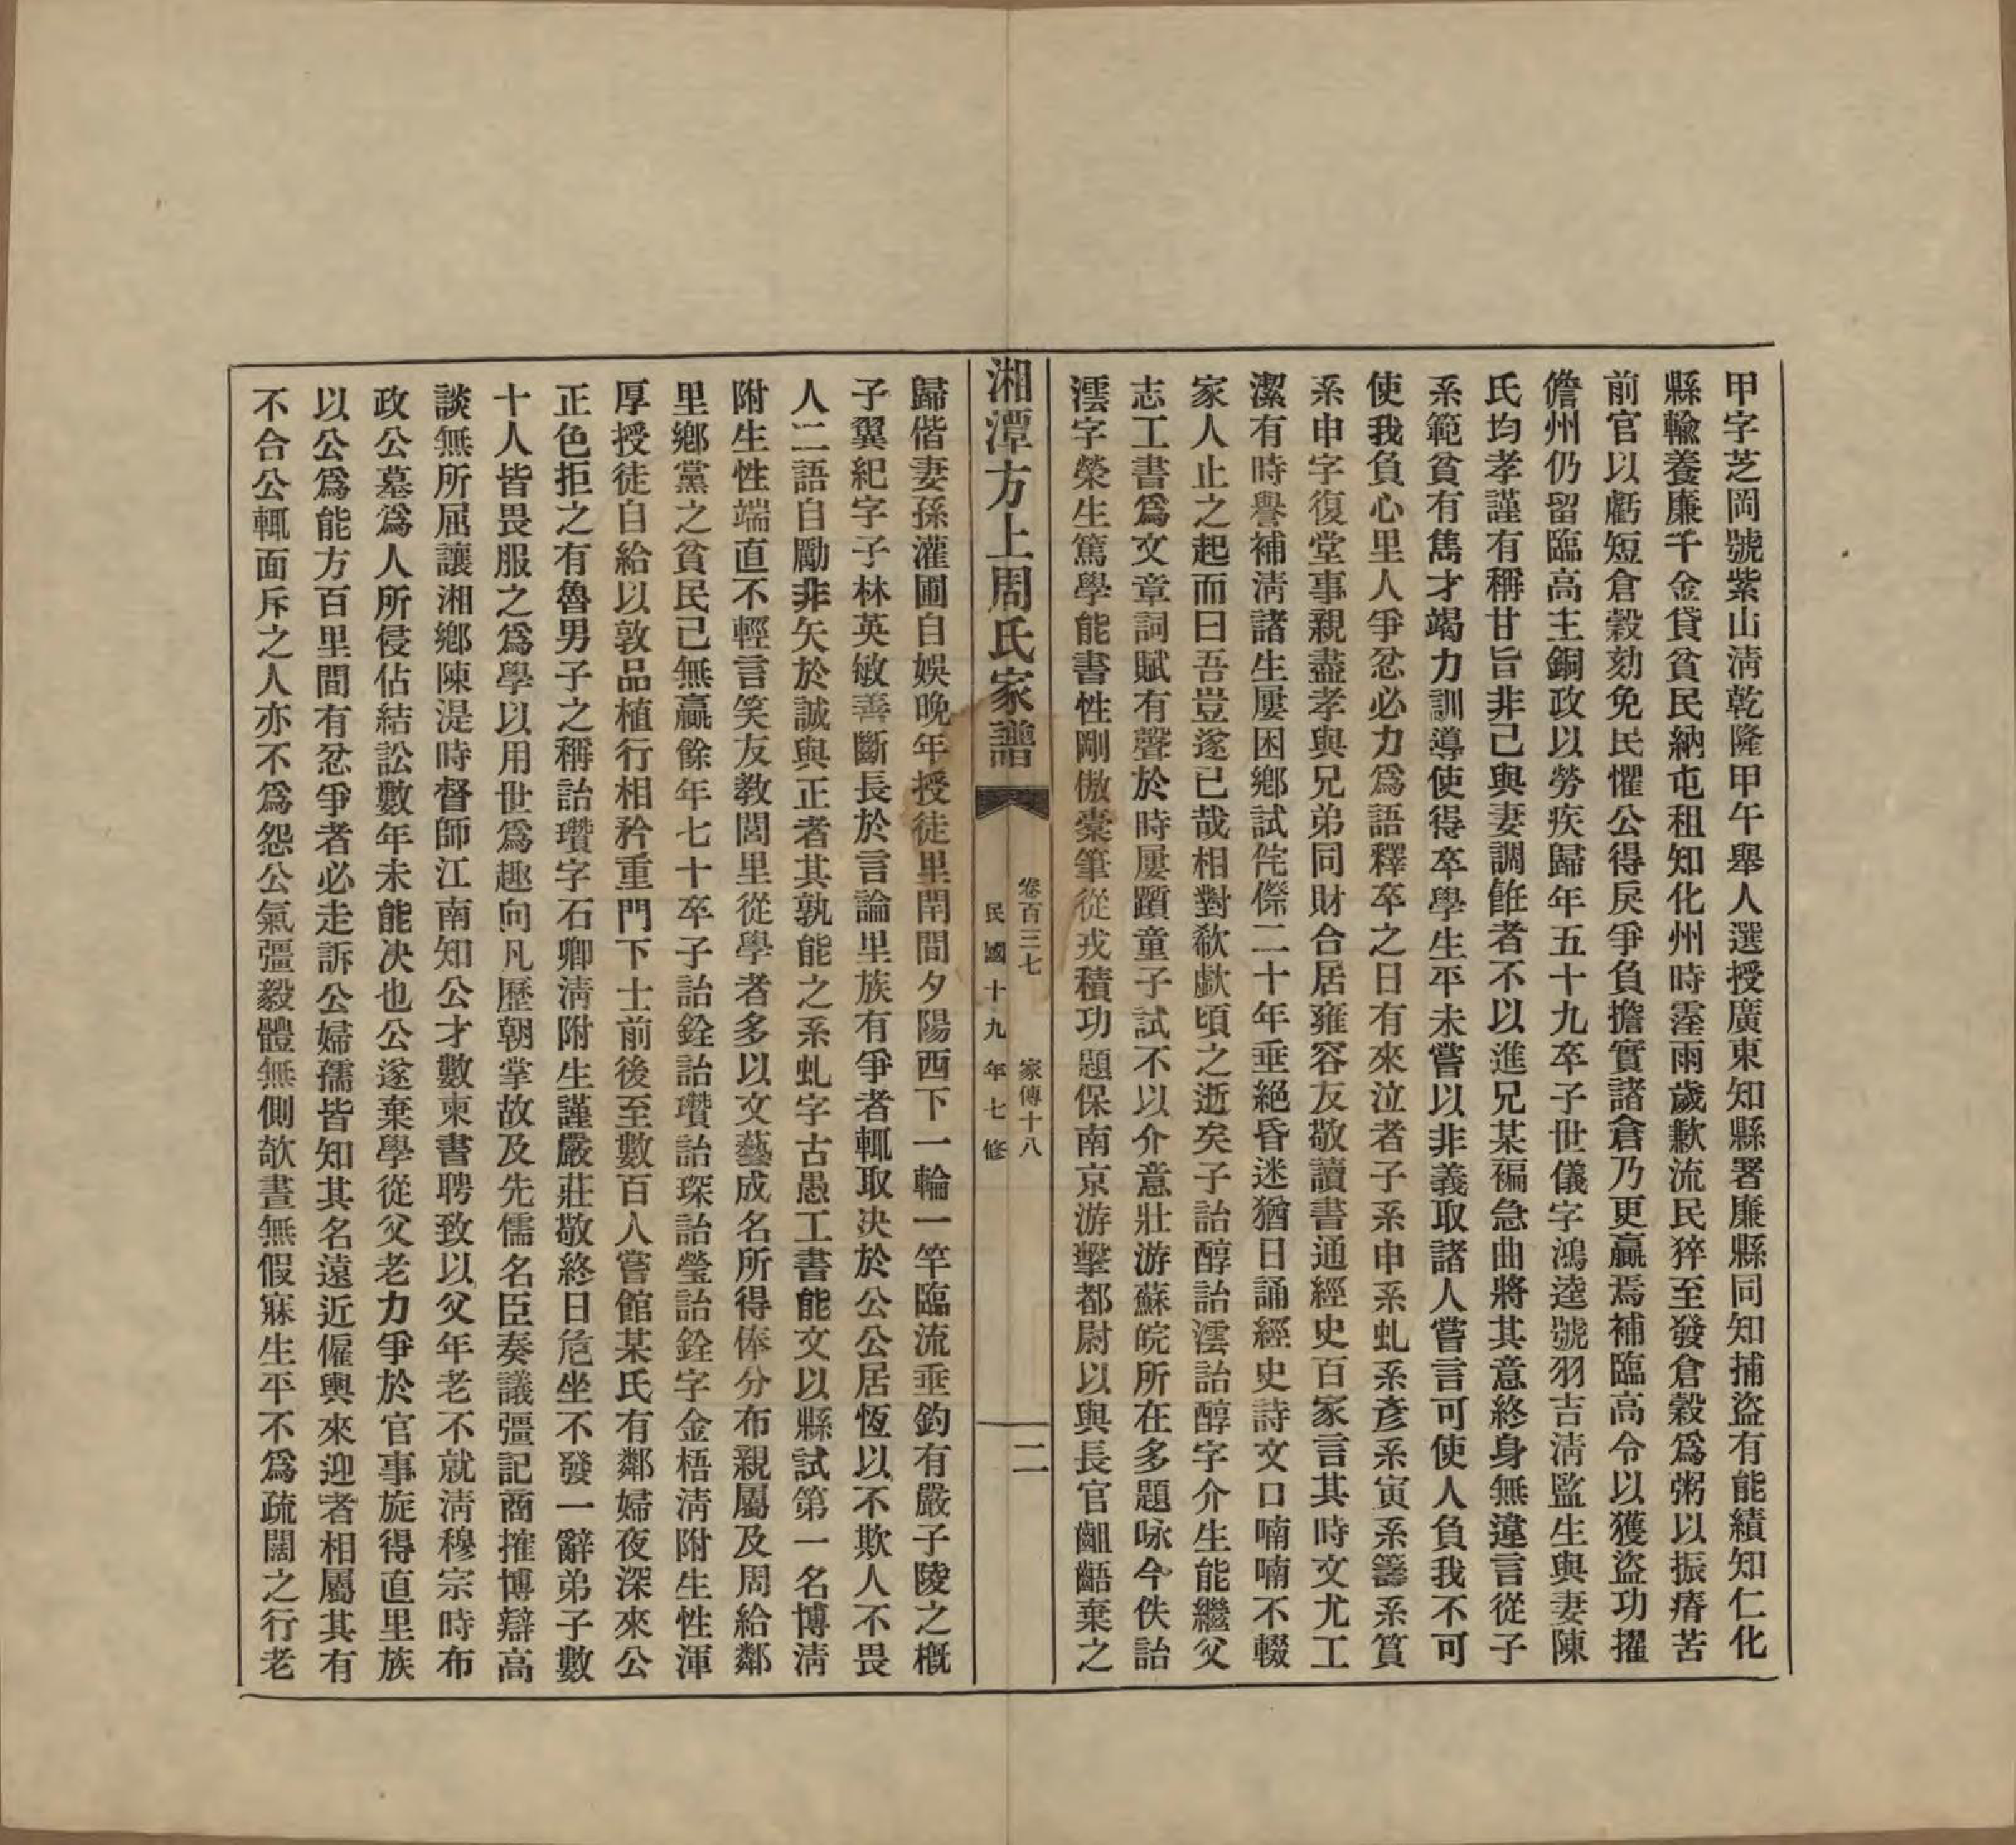 甲字芝岡號紫山淸乾隆甲午舉人選授廣東知縣署廉縣同知捕盜有能績知仁化
縣輸養廉千金貸貧民納屯租知化州時霪雨歲歉流民猝至發倉穀爲粥以振瘠苦
前官以虧短倉穀劾免民懼公得戾爭負擔實諸倉乃更贏焉補臨高令以獲盜功擢
儋州仍留臨高主銅政以勞疾歸年五十九卒子世儀字鴻逵號羽吉淸監生與妻陳
氏均孝謹有稱甘旨非己與妻調飪者不以進兄某褊急曲將其意終身無違言從子
系範貧有雋才竭力訓導使得卒學生平未嘗以非義取諸人嘗言可使人負我不可
使我負心里人爭忿必力爲語釋卒之日有來泣者子系申系虬系彥系寅系籌系篔
系申字復堂事親盡孝與兄弟同財合居雍容友敬讀書通經史百家言其時文尤工
潔有時譽補淸諸生屢困鄉試侘傺二十年垂絕昏迷猶日誦經史詩文口喃喃不輟
家人止之起而曰吾豈遂已哉相對欷歔頃之逝矣子詒醇詒澐詒醇字介生能繼父
志工書爲文章詞賦有聲於時屢躓童子試不以介意壯游蘇皖所在多題咏今佚詒
澐字榮生篤學能書性剛傲橐筆從戎積功題保南京游擊都尉以與長官齟齬棄之
湘潭方上周氏家譜
卷百三七 家傳十八
民國十九年七修
二
歸偕妻孫灌圃自娛晚年授徒里閈間夕陽西下一輪一竿臨流垂釣有嚴子陵之概
子翼紀字子林英敏善斷長於言論里族有爭者輒取决於公公居恆以不欺人不畏
人二語自勵非矢於誠與正者其孰能之系虬字古愚工書能文以縣試第一名博淸
附生性端直不輕言笑友教閭里從學者多以文藝成名所得俸分布親屬及周給鄰
里鄉黨之貧民己無贏餘年七十卒子詒銓詒瓚詒琛詒瑩詒銓字金梧淸附生性渾
厚授徒自給以敦品植行相矜重門下士前後至數百人嘗館某氏有鄰婦夜深來公
正色拒之有魯男子之稱詒瓚字石卿淸附生謹嚴莊敬終日危坐不發一辭弟子數
十人皆畏服之爲學以用世爲趣向凡歷朝掌故及先儒名臣奏議彊記商搉博辯高
談無所屈讓湘鄉陳湜時督師江南知公才數柬書聘致以父年老不就淸穆宗時布
政公墓爲人所侵佔結訟數年未能决也公遂棄學從父老力爭於官事旋得直里族
以公爲能方百里間有忿爭者必走訴公婦孺皆知其名遠近僱輿來迎者相屬其有
不合公輒面斥之人亦不爲怨公氣彊毅體無側欹晝無假寐生平不爲疏闊之行老